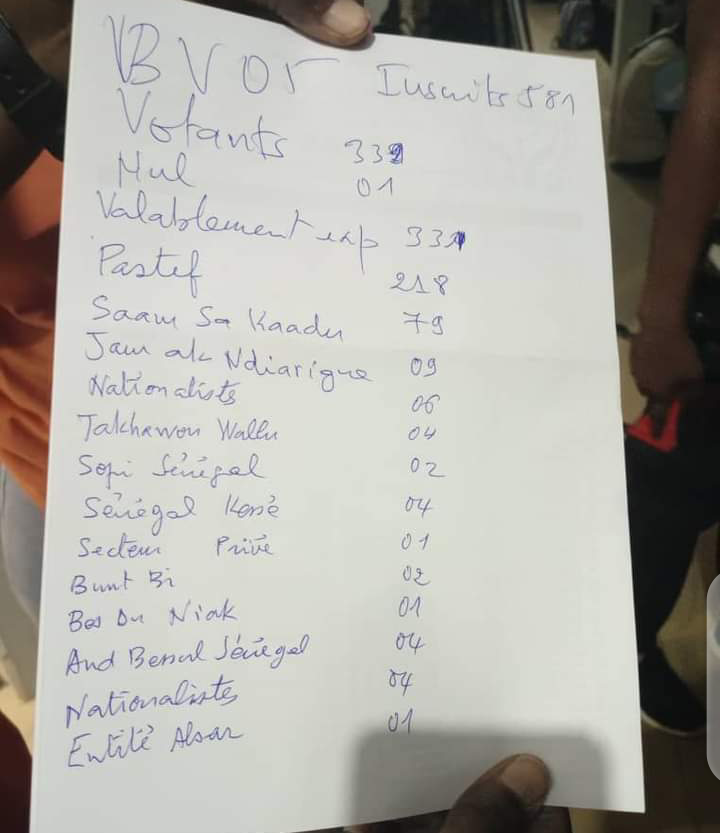 BV 05 Inscrits 581
Votants 332
Nul 01
Valablement exp 331
Pastef 218
Saam Sa Kaadu 79
Jam ak Ndiarigne 09
Nationalists 06
Takhawou Wallu 04
Sopi Sénégal 02
Sénégal Kessé 04
Secteur Privé 01
Bunt Bi 02
Bos Du Niak 01
And Bessal Sénégal 04
Nationalistes 04
Entité Alsar 01